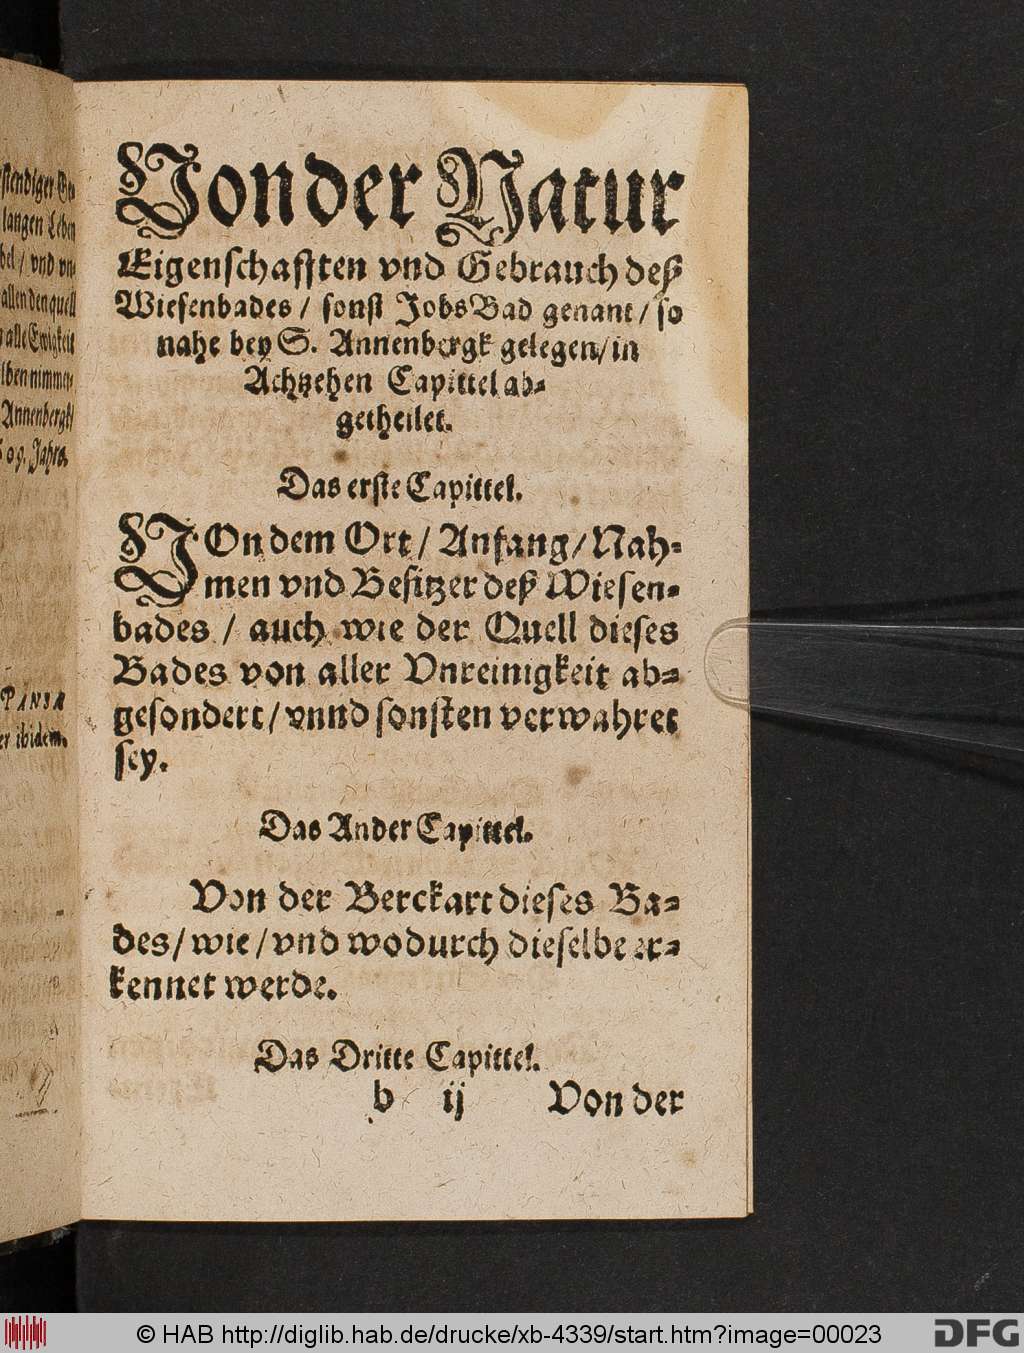 stendiger
langen Leben
bel / vnd vn-
allen den quell
alle Ewigkeit
lben nimmer-
Annenbergk/
609. Jahrs.
PANSA
er ibidem.
Von der Natur
Eigenschafften vnd Gebrauch deß
Wiesenbades / sonst Jobs Bad genant / so
nahe bey S. Annenbergk gelegen / in
Achtzehen Capittel ab-
getheilet.
Das erste Capittel.
VOn dem Ort / Anfang / Nah-
men vnd Besitzer deß Wiesen-
bades / auch wie der Quell dieses
Bades von aller Vnreinigkeit ab-
gesondert / vnnd sonsten verwahret
sey.
Das Ander Capittel.
Von der Berckart dieses Ba-
des / wie / vnd wodurch dieselbe er-
kennet werde.
Das Dritte Capittel.
b ij Von der
© HAB http://diglib.hab.de/drucke/xb-4339/start.htm?image=00023
DFG